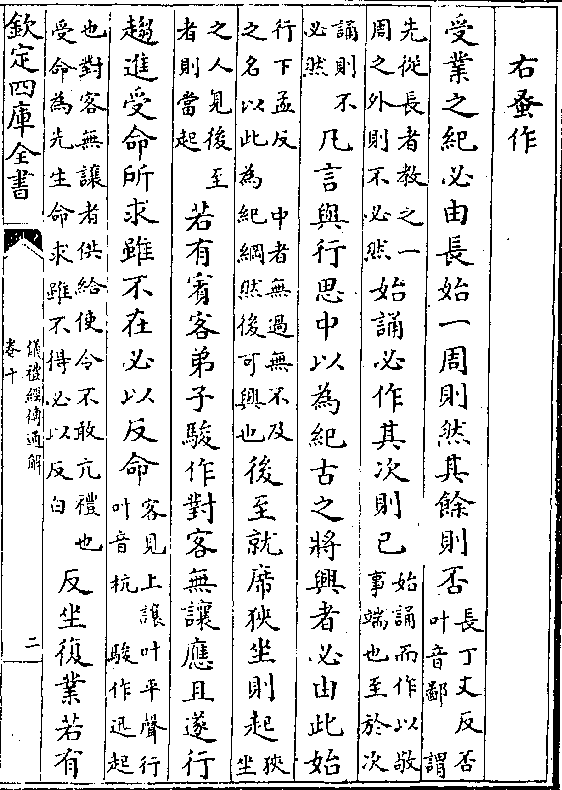 右蚤作
受業之紀必由長始一周則然其餘則否
長丁丈反否
叶音鄙 謂
先從長者教之一
周之外則不必然
始誦必作其次則已
始誦而作以敬
事端也至於次
誦則不
必然
凡言與行思中以為紀古之將興者必由此始
行下孟反 中者無過無不及
之名以此為紀綱然後可興也
後至就席狹坐則起
狹
坐
之人見後至
者則當起
若有賓客弟子駿作對客無讓應且遂行
趨進受命所求雖不在必以反命
客見上讓叶平聲行
叶音杭 駿作迅起
也對客無讓者供給使令不敢亢禮也
受命為先生命求雖不得必以反白
反坐復業若有
欽定四庫全書
儀禮經傳通解
卷十
二